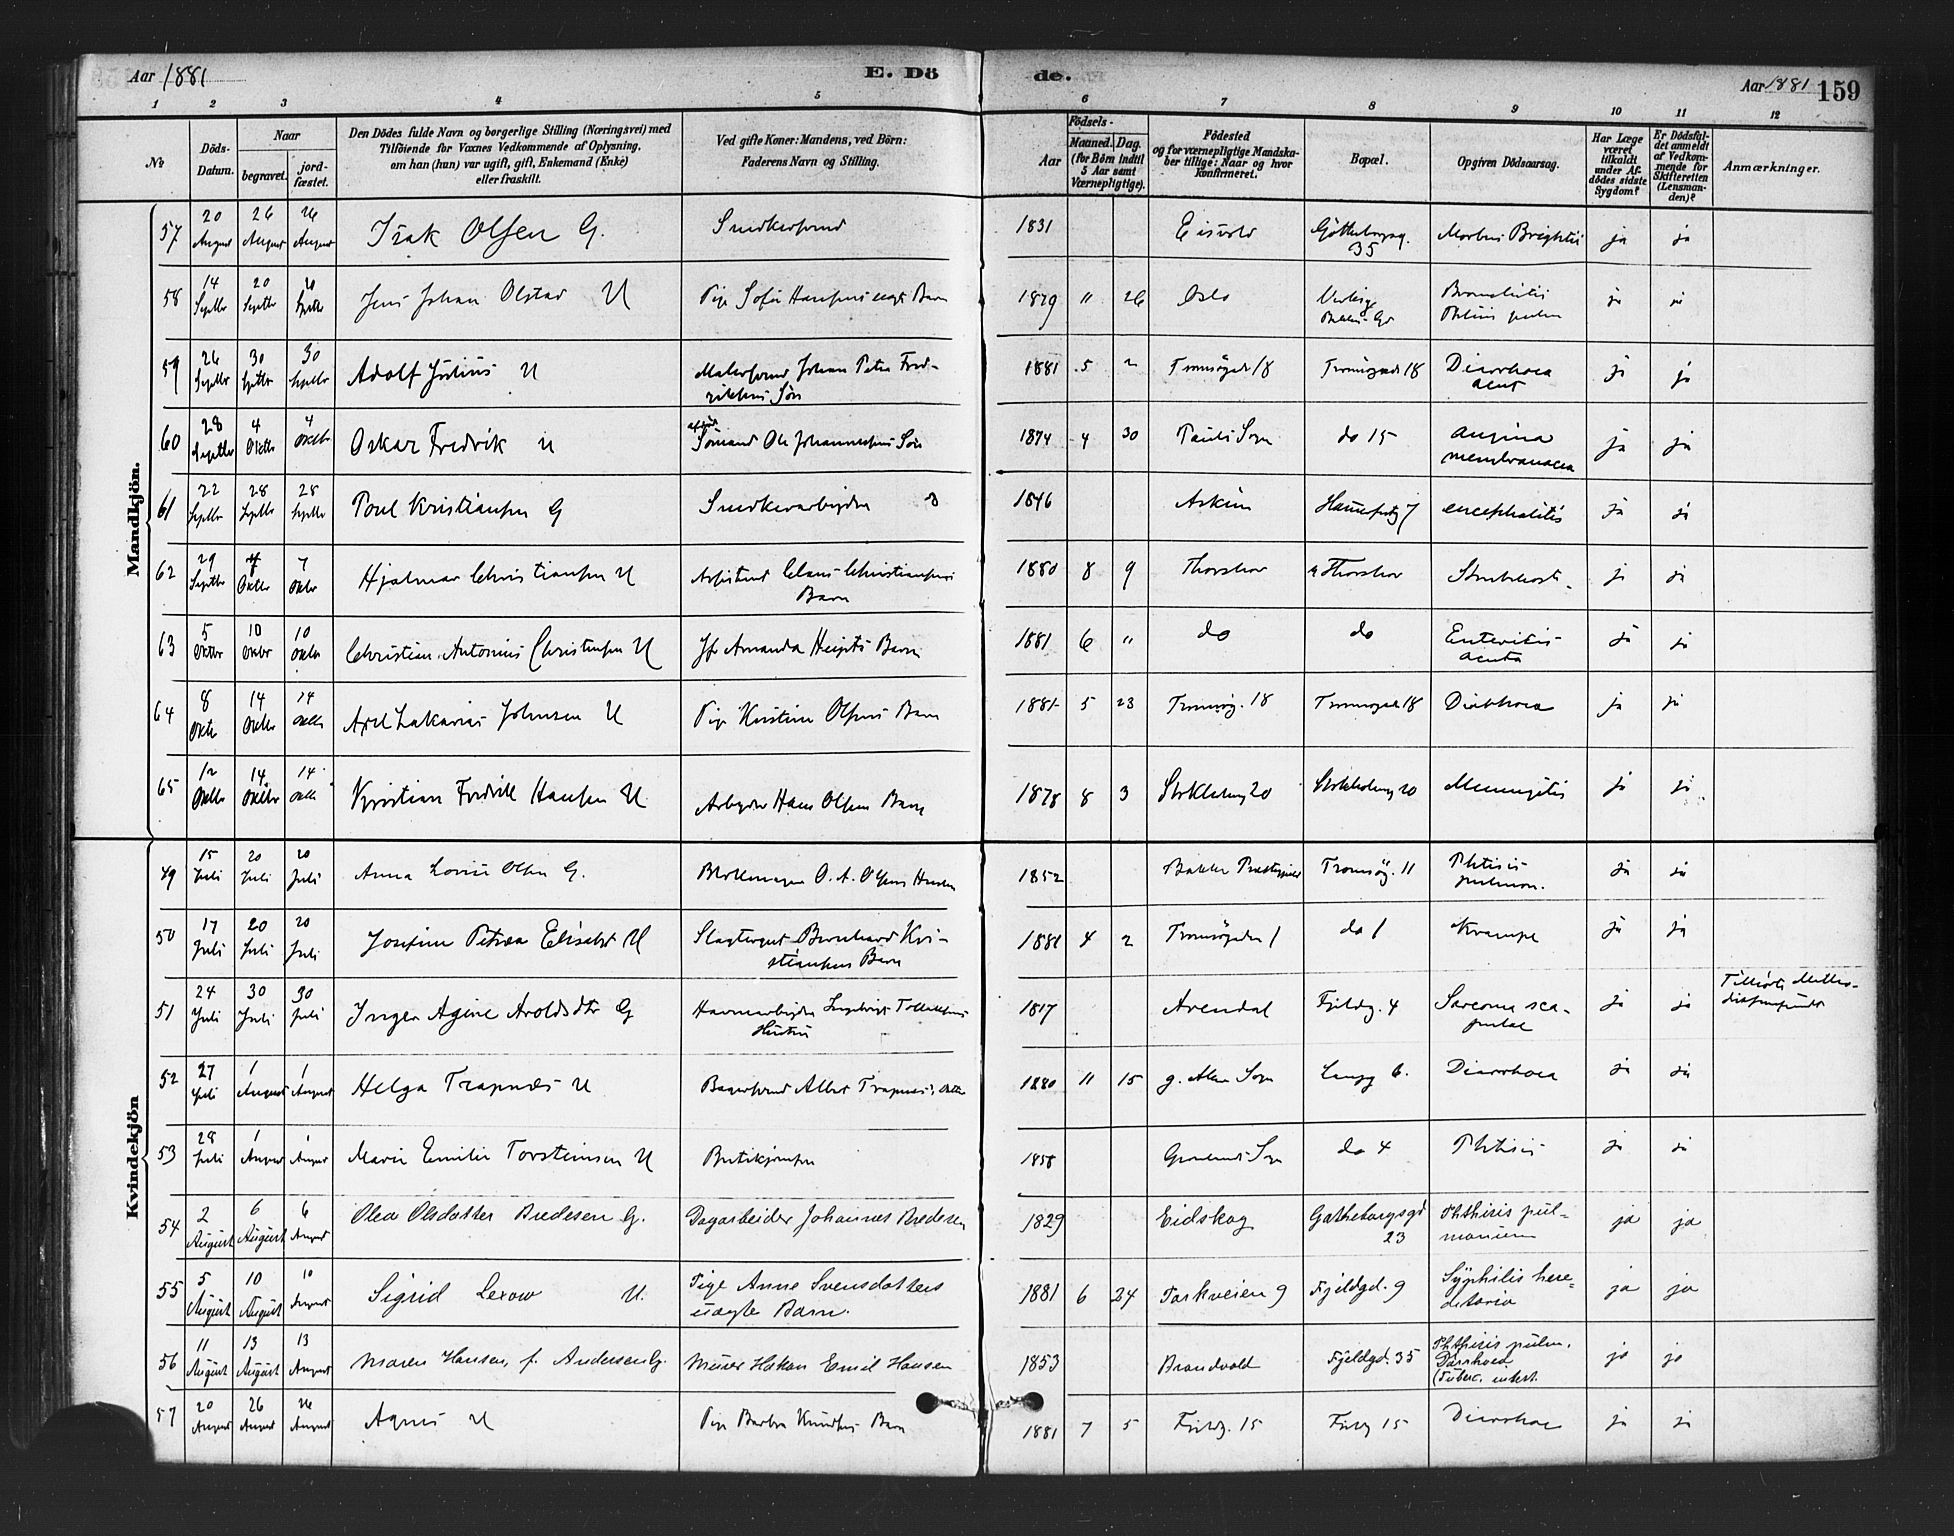 Aar 1881
E. Dö
de.
Aar 1881 159
1 2 3 4 5 6 7 8 9 10 11 12
No
Döds-Datum.
Naar
begravet. jord-fæstet.
Den Dödes fulde Navn og borgerlige Stilling (Næringsvei) med
Tilföiende for Voxnes Vedkommende af Oplysning,
om han (hun) var ugift, gift, Enkemand (Enke)
eller fraskilt.
Ved gifte Koner: Mandens, ved Börn:
Faderens Navn og Stilling.
Födsels-
Aar Maaned. Dag.
(for Börn indtil
5 Aar samt
Værnepligtige).
Födested
og for værnepligtige Mandska-
ber tillige: Naar og hvor
konfirmeret.
Bopæl.
Opgiven Dödsaarsag.
Har Læge
været
tilkaldt
under Af-
dödes sidste
Sygdom?
Er Dödsfal-
det anmeldt
af Vedkom-
mende for
Skifteretten
(Lensman-
den)?
Anmærkninger.
Mandkjön.
57 20 August 26 August 26 August Isak Olsen G. Snedkersvend 1831 Eisvold Götheborgsg. 35 Morbus Brightii ja ja
58 14 Septbr 20 Septbr 20 Septbr Jens Johan Olstad U Pige Sofie Hansens uægte Barn 1879 11 26 Oslo Phtisis pulm ja ja
59 26 Septbr 30 Septbr 30 Septbr Adolf Julius U Malersvend Johan Peter Fred-
riksens Sön 1881 5 2 Tromsögade 18 Tromsögade 18 Diarrhoea
acut ja ja
60 28 Septbr 4 Oktbr 4 Oktbr Oskar Fredrik U Sömand Ole Johannessens Sön 1874 4 30 Pauls Sogn do 15 Angina
membranacea ja ja
61 22 Septbr 28 Septbr 28 Septbr Poul Kristiansen G Snedkerarbeider 1846 Askim 7 encephalitis ja ja
62 29 Septbr 7 Oktbr 7 Oktbr Hjalmar Christiansen U Assistent Claus Christiansens
Barn 1880 8 9 Thorshov Thorshov Strubehoste ja ja
63 5 Oktbr 10 Oktbr 10 Oktbr Christian Antonius Christensen U Jfr Amanda Barn 1881 6 " do do Enteritis
acuta ja ja
64 8 Oktbr 14 Oktbr 14 Oktbr Axel Zakarias Johnsen U Pige Kristine Olsens Barn 1881 5 23 Tromsög. 18 Tromsögade 18 Diarrhoea ja ja
65 12 Oktbr 14 Oktbr 14 Oktbr Kristian Fredrik Hansen U Arbeider Hans Olsens Barn 1878 8 3 Stokholmsg 20 Stokholmsg 20 Meningitis ja ja
Kvindekjön
49 15 Juli 20 Juli 20 Juli Anna Lovise Olsen G. O. A. Olsens Hustru 1852 Bakke Præstegjeld Tromsög. 11 Phtisis
pulmon. ja ja
50 17 Juli 20 Juli 20 Juli Josefine Petrea Elisabet U Slagtersvend Bernhard Kri-
stiansens Barn 1881 4 2 Tromsögaden 1 do 1 Krampe ja ja
51 24 Juli 30 Juli 30 Juli Inger Agine Aroldsdtr G Havnearbeider Ingebrigt Tollefsens
Hustru 1817 Arendal Fjeldg. 4 Sarcoma sca-
pulae ja ja Tilhörte
52 27 Juli 1 August 1 August Helga Trapnæs U Bagersvend Albert Trapnæs's Datter 1880 11 15 g. Akers Sogn Langg 6. Diarrhoea ja ja
53 28 Juli 1 August 1 August Marie Emilie Torsteinsen U Butikjomfru 1858 Grönlands Sogn do 4 Phtisis ja ja
54 2 August 6 August 6 August Olea Olsdatter Bredesen G. Dagarbeider Johannes Bredesen 1829 Eidskog Gøtheborgsgd
23 Phthisis pul-
monum ja ja
55 5 August 10 August 10 August Sigrid Lexow U. Pige Anne Svensdatters
uægte Barn. 1881 6 24 Parkveien 9 Fjeldgd. 9 Syphilis here-
ditaria ja ja
56 11 August 13 August 13 August Maren Hansen, f. Andersen G. Murer Hakon Emil Hansen 1853 Brandvold Fjeldgd. 35 Phthisis pulm.
Diarrhoea
(Tuberc. intest. ja ja
57 20 August 26 August 26 August Agnes U Pige Barbra Knudsens Barn 1881 7 5 Fjeldg. 15 Fjeldg 15 Diarrhoe ja ja